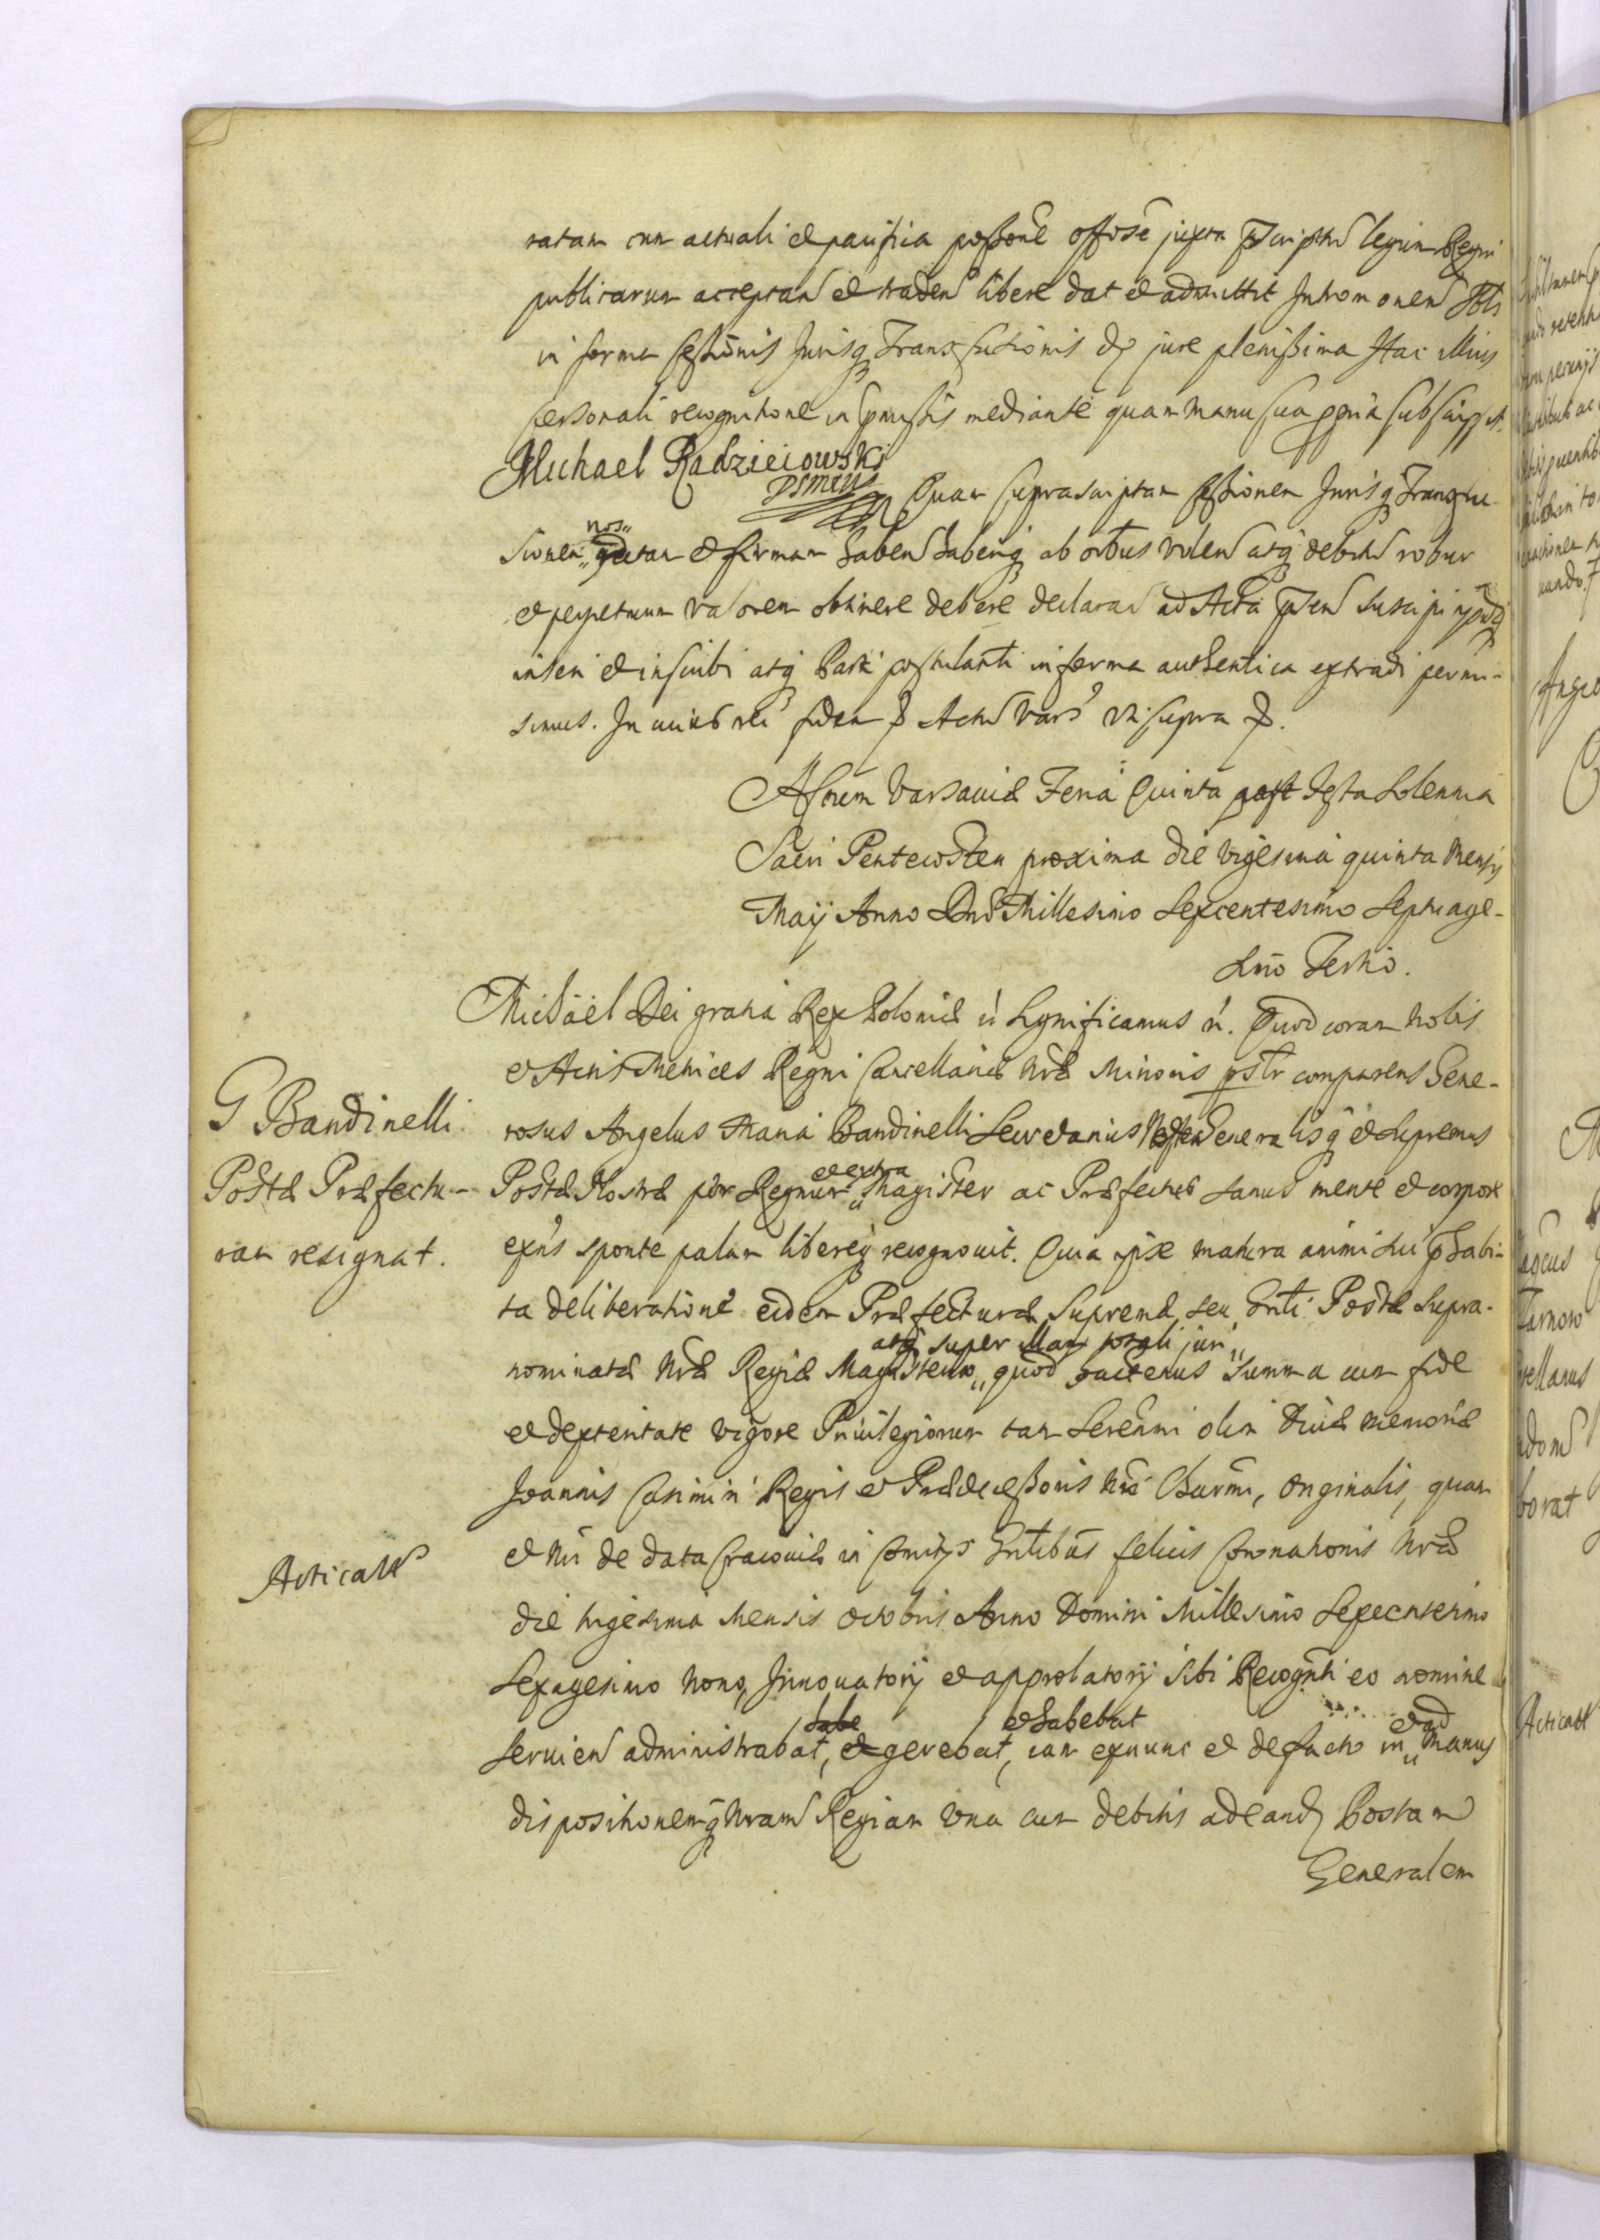 ratam cum actuali et pacifica possone offose juxta pscriptu legum Regni
publicarum acceptan et traden libere dat et admittit Intromonem
in forma Cessionis Jurisq Transfusionis de jure plenissima Hac illius
personali recognitione in pmissis mediante quam manu sua ppria subscripsit.
Michael Radzieiowski
Quam suprascriptam Cessionem Jurisq Transfu-
sionem nos ratam et firmam haben haberiq ab oibus volen atq debitu robur
et perpetuum valorem obtinere debere declaran ad Acta psen suscipi
inseri et inscribi atq Parti postulanti in forma authentica extradi permi-
simus. In cuius rei fidem p Actu Vars Vti supra p.
Actum Varsauiæ Feria Quinta post Festa Solennia
Sacri Pentecosten proxima die vigesima quinta Mensis
Maij Anno Dni Millesimo Sexcentesimo Septuage-
simo Tertio.
Michaël Dei gratia Rex Poloniæ ii Significamus ii. Quod coram Nobis
et Actis Metrices Regni Cancellariæ Nræ Minoris pslr comparens Gene-
rosus Angelus Maria Bandinelli Secretarius Noster Generalisq et Supremus
G Bandinelli
Postæ Præfectu-
ram resignat.
Postæ Nostræ per Regnum et extra Magister ac Præfectus sanus mente et corpore
exns sponte palam libereq recognouit. Quia ipse matura animi sui phabi-
ta deliberatione eidem Præfecturæ Supremæ seu Gnli Postæ supra-
nominatæ Nræ Regiæ Magisterio atq super illam totali juri quod hactenus summa cum fide
et dexteritate vigore Priuilegiorum tam Serenmi olim Diuæ memoriæ
Joannis Casimiri Regis et Prædecessoris Nri Charmi, originalis, quam
Acticatt
et Nri de data Cracouiæ in Comitijs Gnlibus felicis Coronationis Nræ
die trigesima Mensis Octobris Anno Domini Millesimo Sexcentesimo
Sexagesimo Nono, Innouatorij et approbatorij sibi Recognti eo nomine
seruien administrabat, gerebat, et habebat iam exnunc et de facto in et ad Manus
dispositionemq Nram Regiam vna cum debitis adeand Postam
Generalem